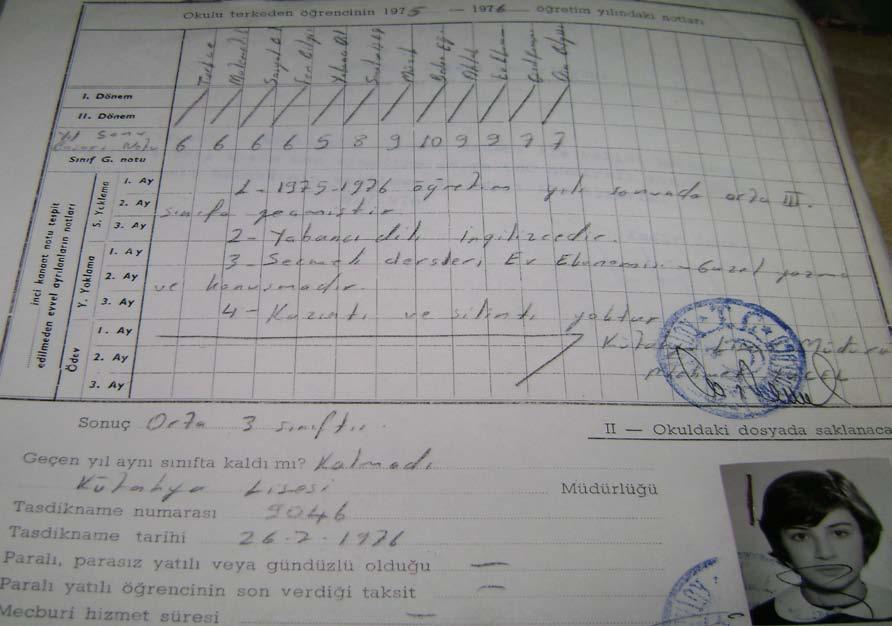 Okulu terkeden öğrencinin 1975 — 1976 öğretim yılındaki notları
Türkçe Matematik Sosyal B. Fen Bilgisi Yabancı Dil Müzik Beden Eğ. Din Bilgisi
I. Dönem
II. Dönem
Yıl Sonu Notu 6 6 6 6 5 8 9 10 9 9 7 7
Sınıf G. notu
inci kanaat notu tespit edilmeden evvel ayrılanların notları
S. Yoklama
1. Ay
2. Ay
3. Ay
Y. Yoklama
1. Ay
2. Ay
3. Ay
Ödev
1. Ay
2. Ay
3. Ay
1- 1975-1976 öğretim yılı sonunda orta III.
sınıfa geçmiştir
2- Yabancı dili ingilizcedir.
3- Seçmeli dersleri, Ev Ekonomisi - Güzel yazma
ve konuşmadır.
4- Kazıntı ve silinti yoktur
Kütahya Lisesi Müdürü
T.C.
Sonuç Orta 3 sınıftır.
II — Okuldaki dosyada saklanaca
Geçen yıl aynı sınıfta kaldı mı? Kalmadı
Kütahya Lisesi Müdürlüğü
Tasdikname numarası 9046
Tasdikname tarihi 26-7-1976
Paralı, parasız yatılı veya gündüzlü olduğu —
Paralı yatılı öğrencinin son verdiği taksit —
Mecburi hizmet süresi —